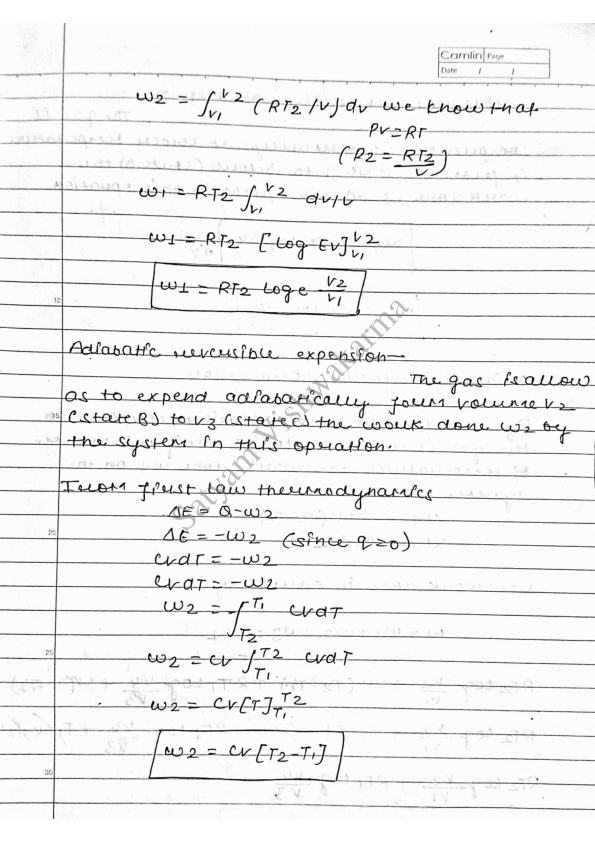 Camlin Page
Date / /
w2 = ∫v1^v2 (RT2/v) dv we know that
PV = RT
(P2 = RT2/V)
w1 = RT2 ∫v1^v2 dv/v
w1 = RT2 [Log Ev]v1^v2
w1 = RT2 Loge v2/v1
10
Adiabatic reversible expension—
The gas is allow
as to expend adiabatically form volume v2
15 (state B) to v3 (state C) the work done w2 by
the system in this operation.
From first law thermodynamics
ΔE = Q-w2
20 ΔE = -w2 (since q=0)
CvdT = -w2
CvdT = -w2
w2 = -∫T2^T1 CvdT
25 w2 = Cv ∫T1^T2 CvdT
w2 = Cv[T]T1^T2
w2 = Cv [T2-T1]
30
Satyam Vishwakarma